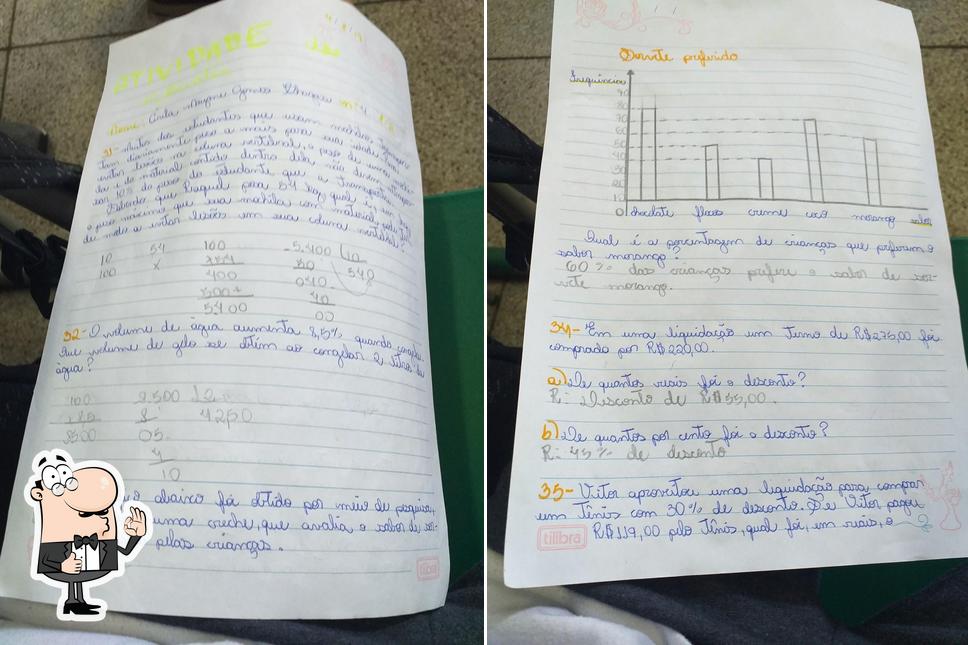 ATIVIDADE
Nome:
31- Muitos dos estudantes que usam mochilas
tam diariamente peso a mais para sua idade.
evitar lesões na coluna vertebral, o peso de uma
la e do material contido dentro dela não devem
sar 10% do peso do estudante que a
Sabendo que Raquel pesa 54 kg, qual é, em kg,
o peso máximo que sua mochila com material
de modo a evitar lesões em sua coluna vertebral?
10 54 100 5.400 10
100 x 540
400 040
500+ 40
5400 00
32- O volume de água aumenta 8,5% quando congela.
Que volume de gelo se obtém ao congelar 2 litros de
água?
100 8.500 2
8500 05.
10
abaixo foi obtido por meio de pesquisa,
uma creche, que avalia o sabor de sor-
pelas crianças.
tilibra
Sorvete preferido
Frequência
90
80
70
60
50
40
30
20
10
0 chocolate flocos creme uva morango sabor
Qual é a porcentagem de crianças que preferem o
sabor morango?
60% das crianças prefere o sabor de sor-
vete morango.
34- Em uma liquidação um terno de R$275,00 foi
comprado por R$220,00.
a) De quantos reais foi o desconto?
R: Disconto de R$55,00.
b) De quantos por cento foi o desconto?
R: 45% de desconto
35- Vitor aproveitou uma liquidação para comprar
um tênis com 30% de desconto. Se Vitor pagou
R$119,00 pelo tênis, qual foi, em reais, o
tilibra